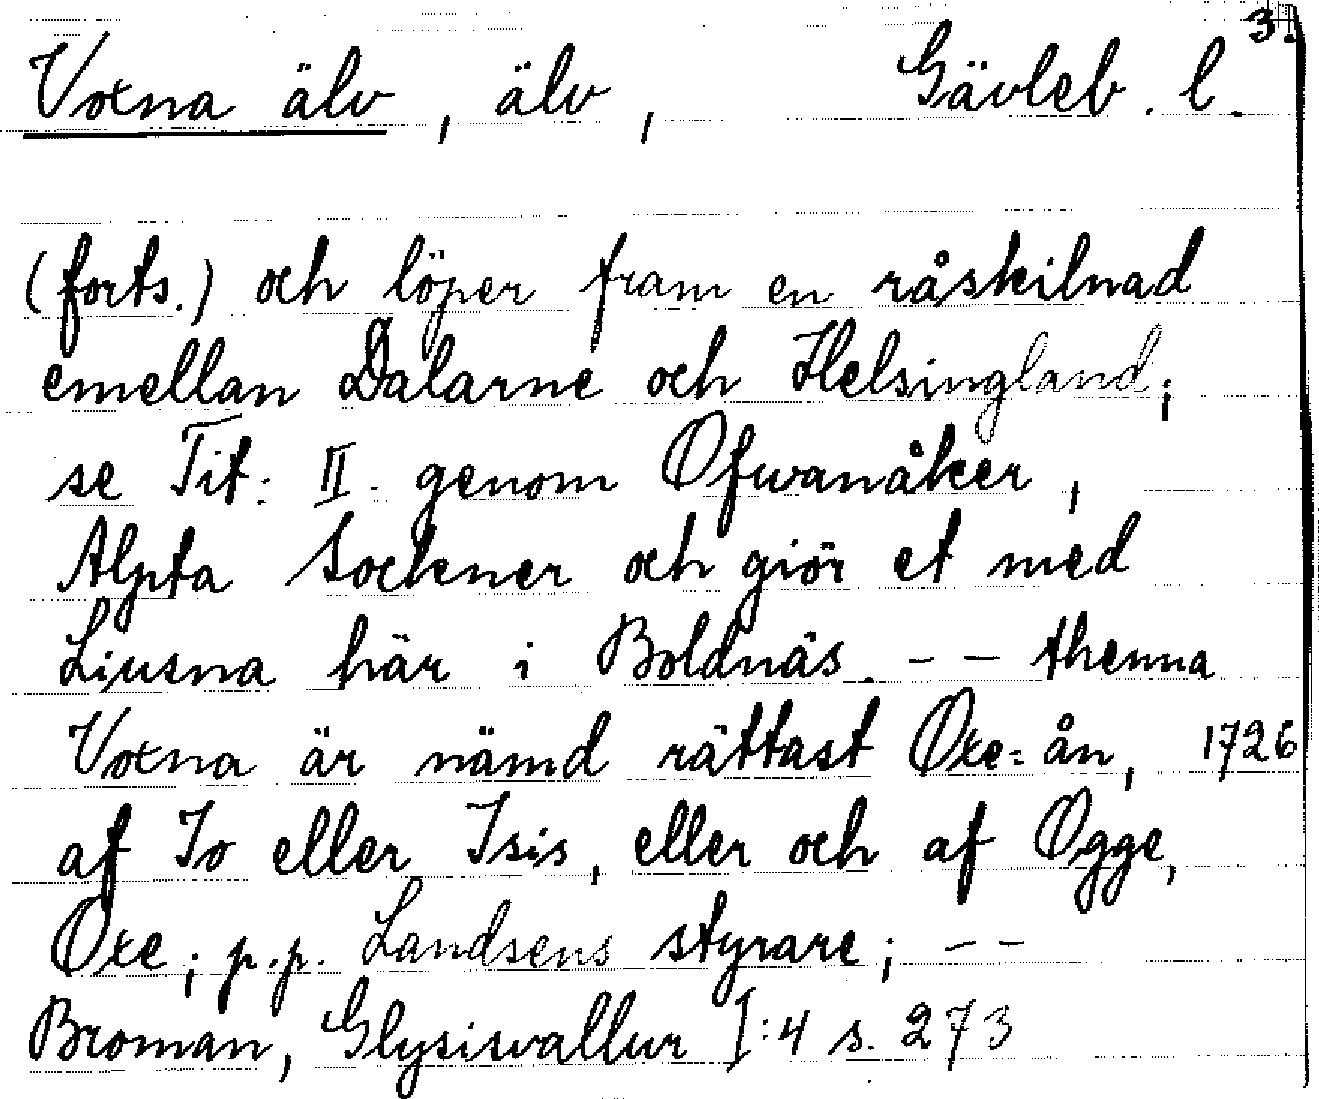 3.
Voxna älv, älv, Gävleb. l.
(forts.) och löper fram en råskilnad
emellan Dalarne och Helsingland;
se Tit: II. genom Ofwanåker,
Alpta Sockner och giör et med
Liusna här i Boldnäs. - - thenna
Voxna är nämd rättast Oxe=ån, 1726
af Io eller Isis, eller och af Ogge,
Oxe; p.p. Landsens styrare; - -
Broman, Glysisvallur I:4 s. 273